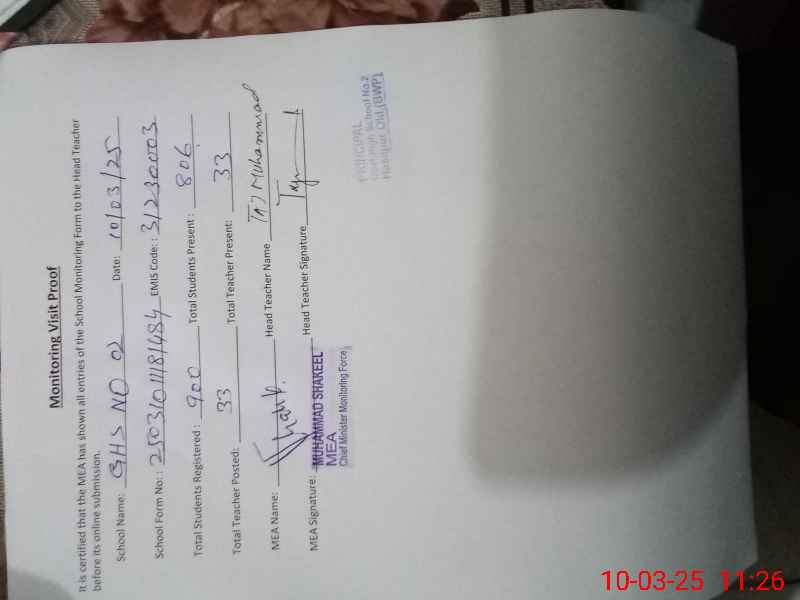 Monitoring Visit Proof
It is certified that the MEA has shown all entries of the School Monitoring Form to the Head Teacher
before its online submission.
School Name: GHS NO 02 Date: 10/03/25
School Form No:: EMIS Code:: 31230003
Total Students Registered: 900 Total Students Present: 806
Total Teacher Posted: 33 Total Teacher Present: 33
MEA Name: Head Teacher Name Taj Muhammad
MEA Signature: Head Teacher Signature
MUHAMMAD SHAKEEL
MEA
Chief Minister Monitoring Force
PRINCIPAL
Govt High School No.2
Hasilpur Old (BWP)
10-03-25 11:26